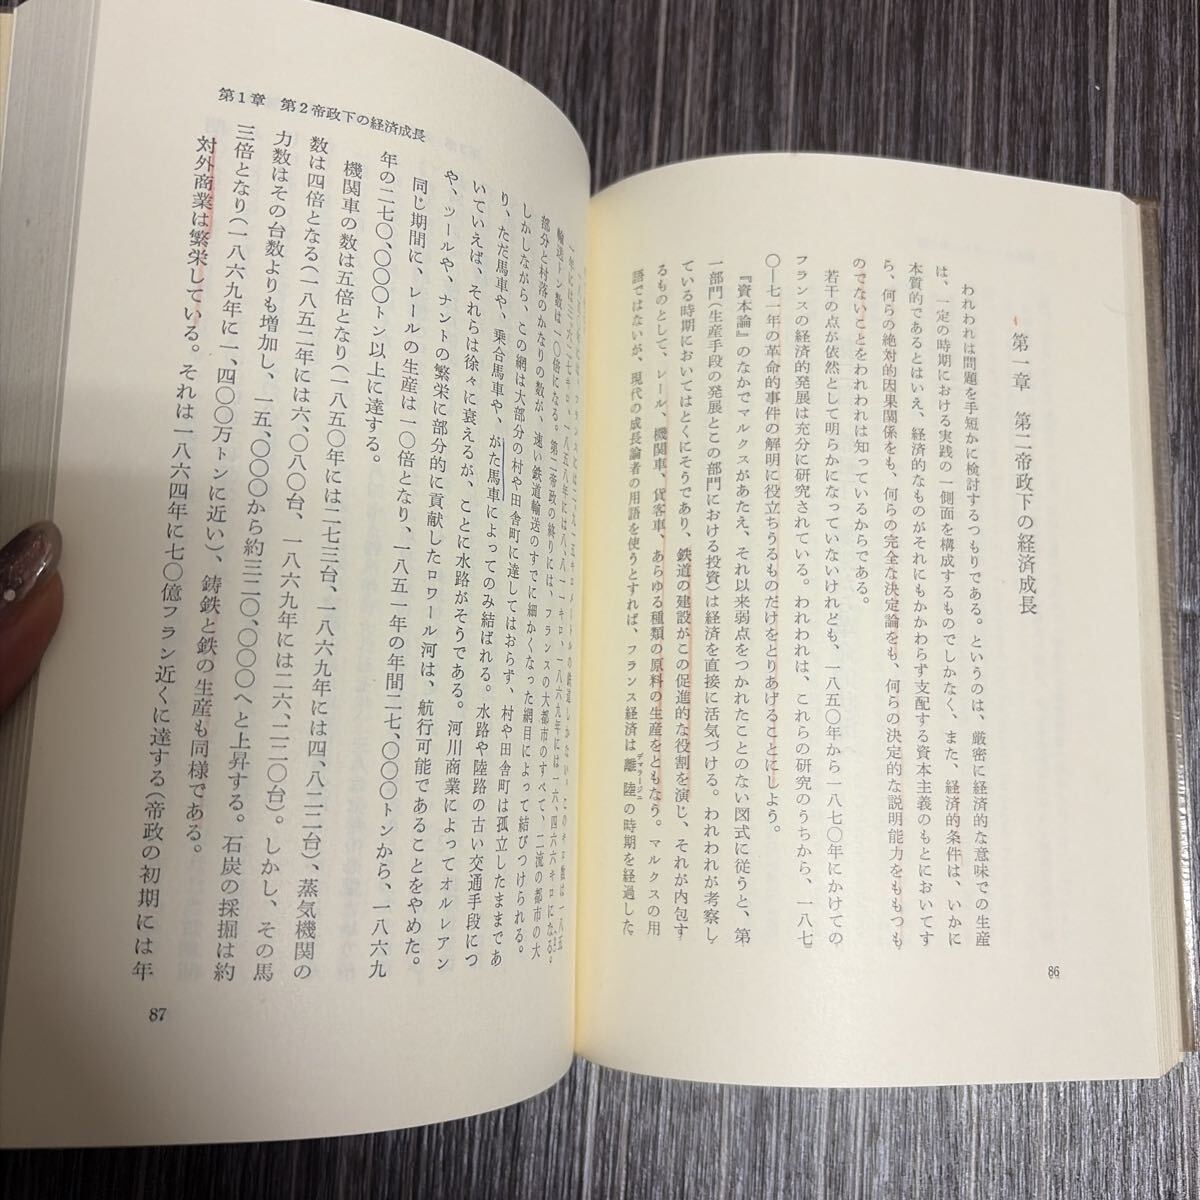 第一章　第二帝政下の経済成長
われわれは問題を手短かに検討するつもりである。というのは、厳密に経済的な意味での生産
は、一定の時期における実践の一側面を構成するものでしかなく、また、経済的条件は、いかに
本質的であるとはいえ、経済的なものがそれにもかかわらず支配する資本主義のもとにおいてす
ら、何らの絶対的因果関係をも、何らの完全な決定論をも、何らの決定的な説明能力をももつも
のでないことをわれわれは知っているからである。
若干の点が依然として明らかになっていないけれども、一八五〇年から一八七〇年にかけての
フランスの経済的発展は充分に研究されている。われわれは、これらの研究のうちから、一八七
〇―七一年の革命的事件の解明に役立ちうるものだけをとりあげることにしよう。
『資本論』のなかでマルクスがあたえ、それ以来弱点をつかれたことのない図式に従うと、第
一部門（生産手段の発展とこの部門における投資）は経済を直接に活気づける。われわれが考察し
ている時期においてはとくにそうであり、鉄道の建設がこの促進的な役割を演じ、それが内包す
るものとして、レール、機関車、貨客車、あらゆる種類の原料の生産をともなう。マルクスの用
語ではないが、現代の成長論者の用語を使うとすれば、フランス経済は離陸の時期を経過した
デマラージュ
86
第1章　第2帝政下の経済成長
輸送トン数は一〇倍になる。第二帝政の終りには、フランスの大都市のすべて、二流の都市の大
部分と村落のかなりの数が、速い鉄道輸送のすでに細かくなった網目によって結びつけられる。
しかしながら、この網は大部分の村や田舎町に達してはおらず、村や田舎町は孤立したままであ
り、ただ馬車や、乗合馬車や、がた馬車によってのみ結ばれる。水路や陸路の古い交通手段につ
いていえば、それらは徐々に衰えるが、ことに水路がそうである。河川商業によってオルレアン
や、ツールや、ナントの繁栄に部分的に貢献したロワール河は、航行可能であることをやめた。
同じ期間に、レールの生産は一〇倍となり、一八五一年の年間二七、〇〇〇トンから、一八六九
年の二七〇、〇〇〇トン以上に達する。
機関車の数は五倍となり（一八五〇年には九七三台、一八六九年には四、八二二台）、蒸気機関の
数は四倍となる（一八五二年には六、〇八〇台、一八六九年には二六、二二〇台）。しかし、その馬
力数はその台数よりも増加し、一五、〇〇〇から約三二〇、〇〇〇へと上昇する。石炭の採掘は約
三倍となり（一八六九年に一、四〇〇万トンに近い）、鋳鉄と鉄の生産も同様である。
対外商業は繁栄している。それは一八六四年に七〇億フラン近くに達する（帝政の初期には年
87